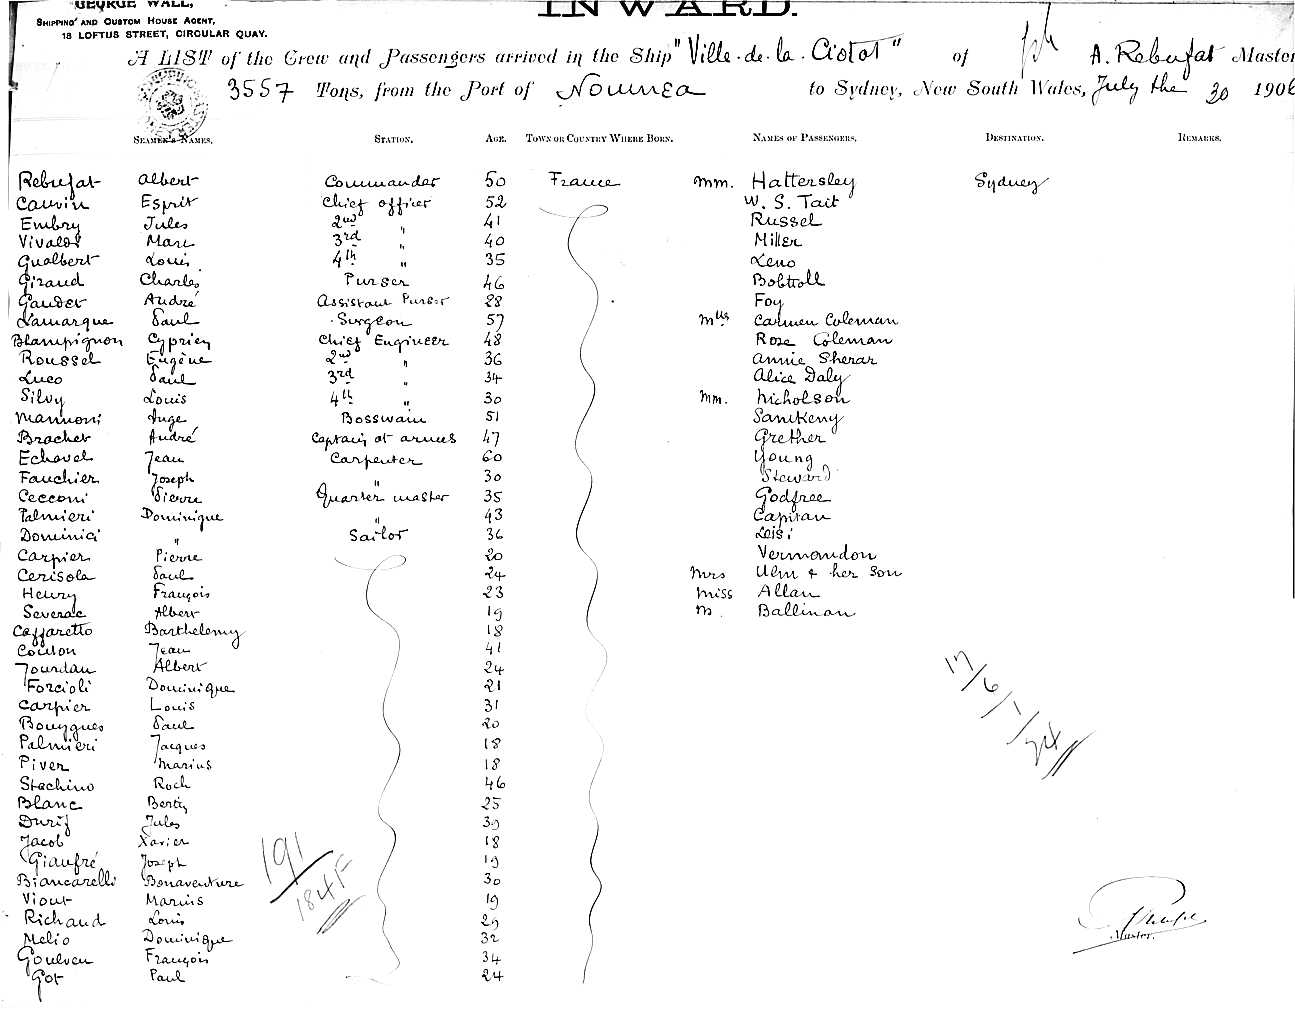 GEORGE WALL,
SHIPPING AND CUSTOM HOUSE AGENT,
18 LOFTUS STREET, CIRCULAR QUAY.
INWARD.
A LIST of the Crew and Passengers arrived in the Ship "Ville-de-la-Ciotat" of A. Rebufat Master
3557 Tons, from the Port of Noumea to Sydney, New South Wales, July the 30 1906
SEAMEN'S NAMES. STATION. AGE. TOWN OR COUNTRY WHERE BORN. NAMES OF PASSENGERS. DESTINATION. REMARKS.
Rebufat Albert Commander 50 France mm. Hattersley Sydney
Cauvin Esprit Chief officer 52 W. S. Tait
Embry Jules 2nd " 41 Russel
Vivalot Marc 3rd " 40 Miller
Gualbert Louis 4th " 35 Leno
Giraud Charles Purser 46
Gauder André Assistant Purser 28 Foy
Lamarque Paul Surgeon 57 Mlls Carmen Coleman
Blampignon Cyprien Chief Engineer 48 Rose Coleman
Roussel Eugène 2nd " 36 Annie Sherar
Luco Paul 3rd " 34 Alice Daly
Silvy Louis 4th " 30 mm. Nicholson
Mannoni Ange Bosswain 51 Sankeny
Brachet André Captain at armes 47 Grether
Echavel Jean Carpenter 60 Young
Fauchier Joseph " 30 Steward
Cecconi Pierre Quarter master 35 Godfree
Palmieri Dominique " 43 Capitan
Dominici " Sailor 36
Carpier Pierre 20 Vermondon
Cerisola Paul 24 Mrs Ulm & her Son
Henry François 23 Miss Allan
Severac Albert 19 M. Ballinan
Caffaretto Barthelemy 18
Coulon Jean 41
Jourdan Albert 24
Forcioli Dominique 21
Carpier Louis 31
Bouygues Paul 20
Palmieri Jacques 18
Piver Marius 18
Stachino Roch 46
Blanc Bertin 25
Durif Jules 39
Jacob Xavier 18
Giaufré Joseph 19
Biancarelli Bonaventure 30
Viout Marius 19
Richaud Louis 29
Melio Dominique 32
Goulven François 34
Got Paul 24
17/6/1/24
191
184F
Master.